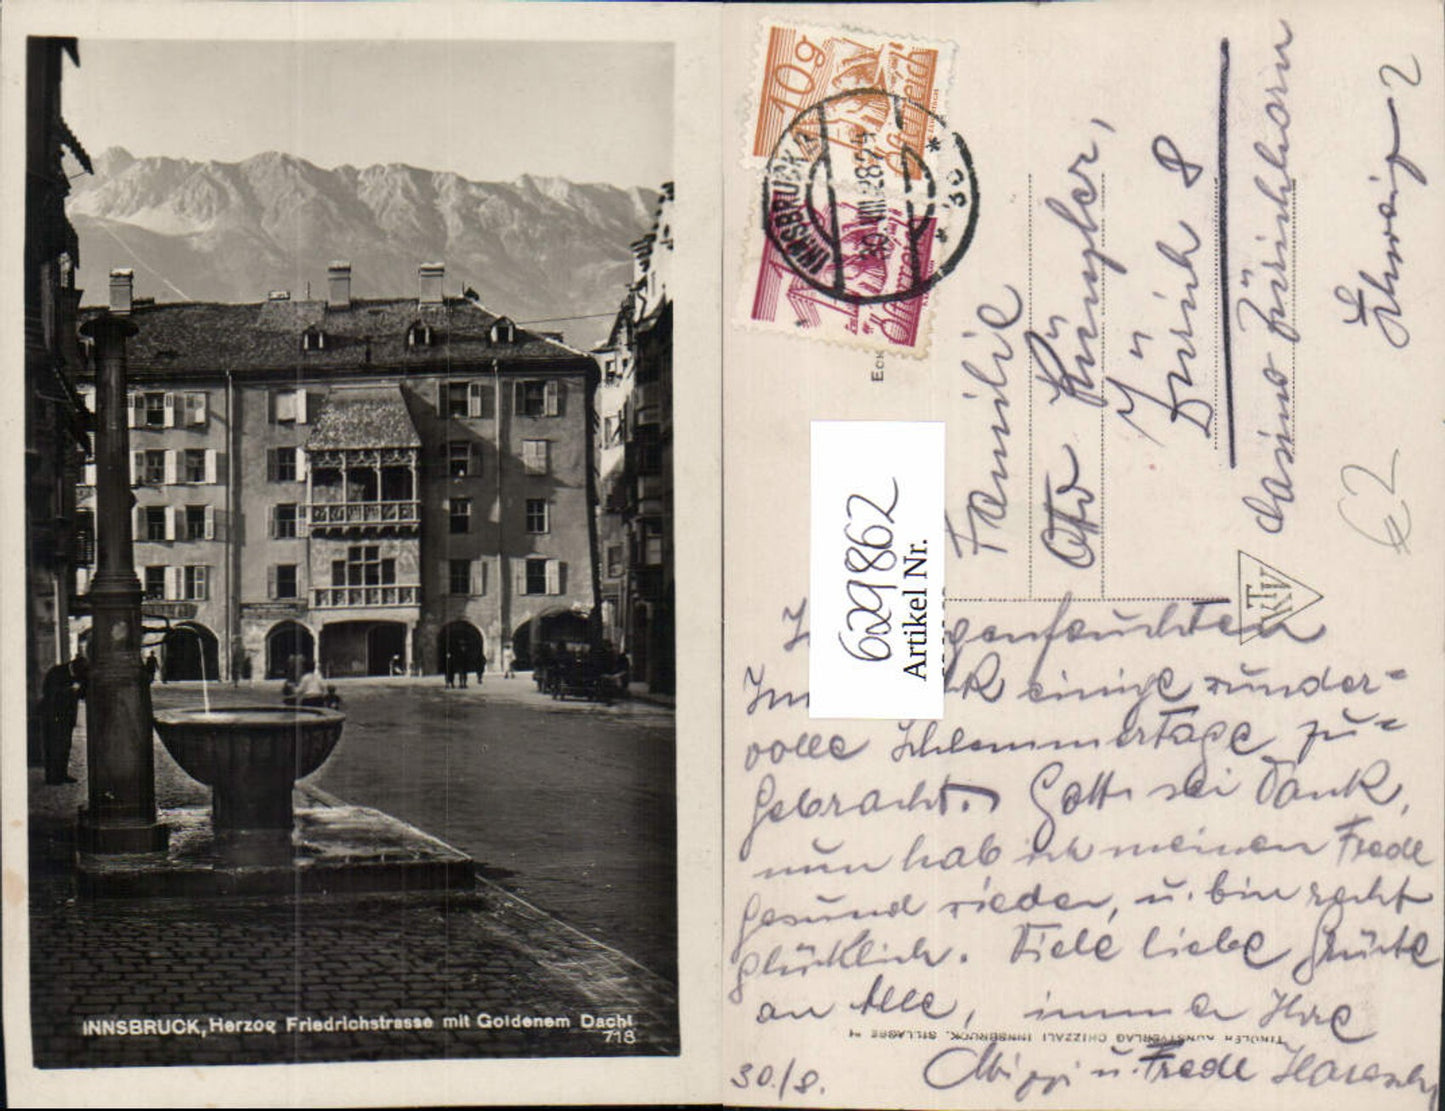 INNSBRUCK, Herzog Friedrichstrasse mit Goldenem Dachl
718
10g
Österreich
Österreich
INNSBRUCK
30.VIII.28
Familie
Otto
Zürich 8
Schweiz
2
62
629862
Artikel Nr.
KTV
einige wunder=
volle Schlemmertage zu=
gebracht. Gott sei Dank,
nun hab ich meinen Fredl
gesund wieder, u. bin recht
glücklich. Viele liebe Grüße
an Alle, immer Ihre
u. Fredl
30./8.
TIROLER KUNSTVERLAG CHIZZALI INNSBRUCK, SILLGASSE